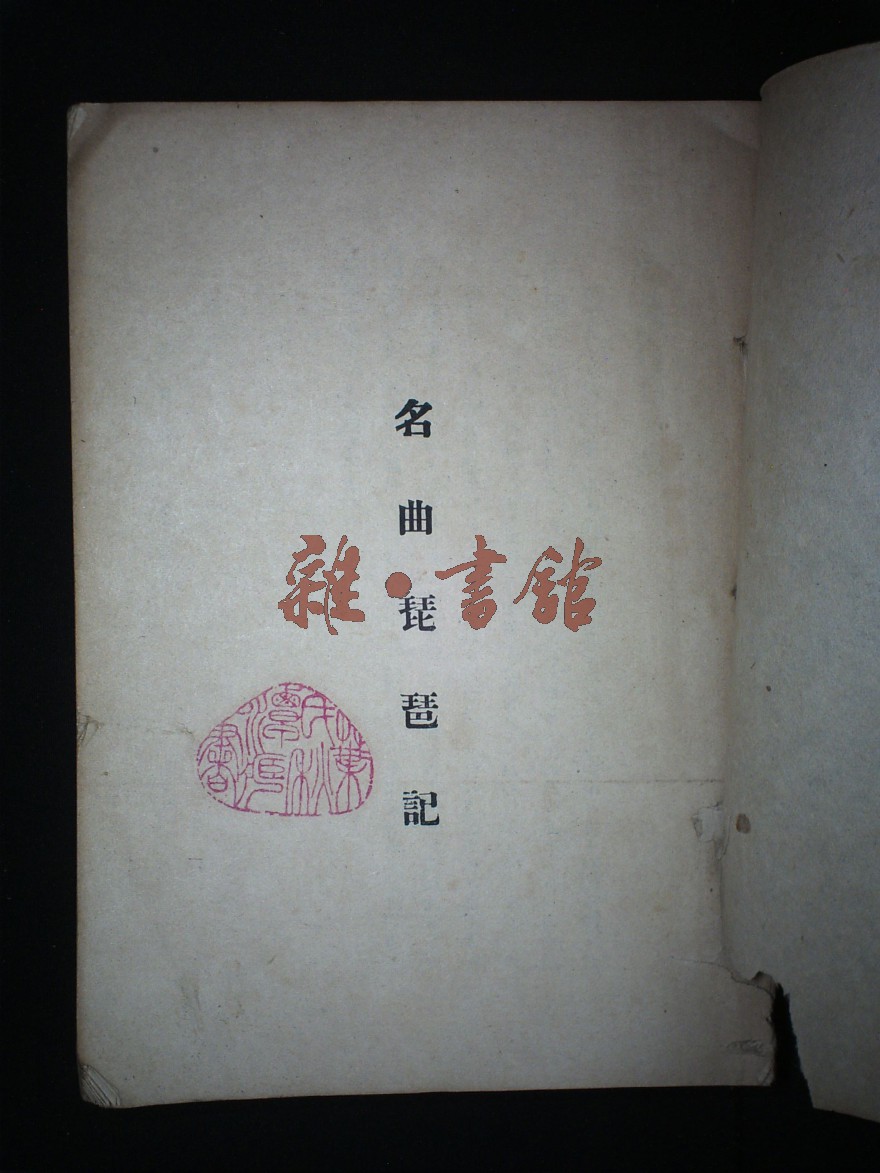 名曲琵琶記
雜·書館